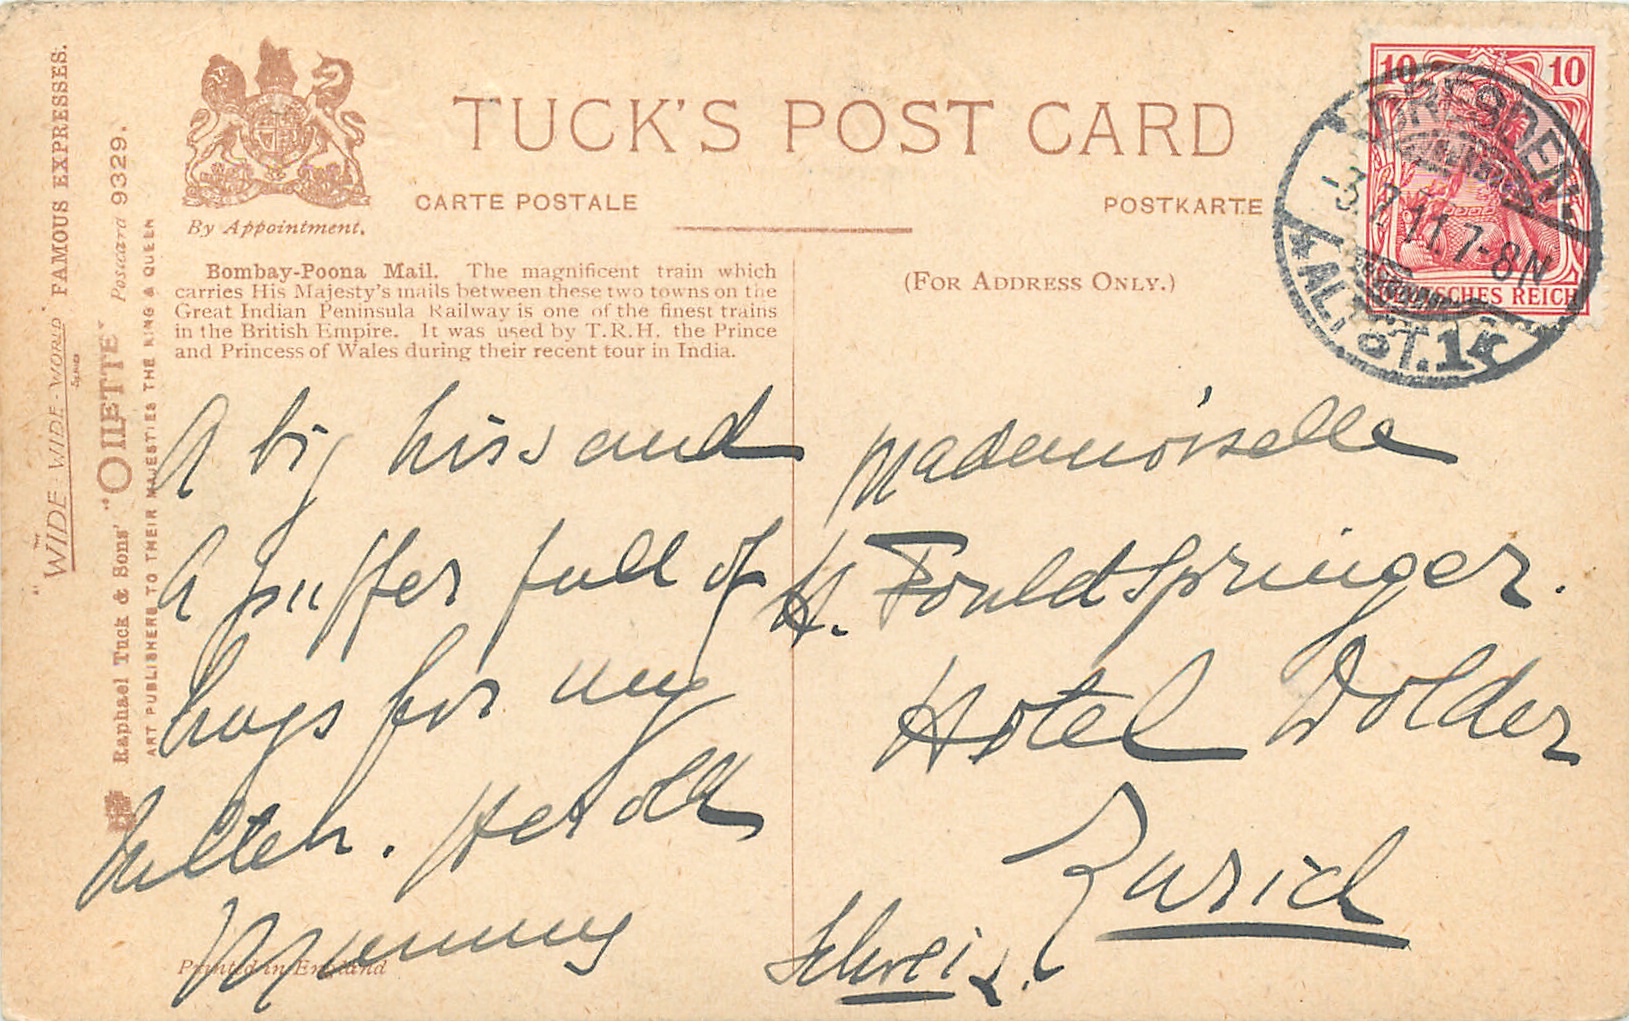 TUCK'S POST CARD
CARTE POSTALE
POSTKARTE
By Appointment.
(FOR ADDRESS ONLY.)
Bombay-Poona Mail. The magnificent train which
carries His Majesty's mails between these two towns on the
Great Indian Peninsula Railway is one of the finest trains
in the British Empire. It was used by T.R.H. the Prince
and Princess of Wales during their recent tour in India.
"THE WIDE-WIDE-WORLD" SERIES FAMOUS EXPRESSES.
Raphael Tuck & Sons' "OILETTE" Postcard 9329.
ART PUBLISHERS TO THEIR MAJESTIES THE KING & QUEEN
10 10
DEUTSCHES REICH
DRESDEN
-3.7.11.7-8N
ALTST.1k
A big kiss and
a puffer full of
hugs for my
Mummy
Mademoiselle
H. Fould Springer.
Hotel Dolder
Zurich
Schweiz.
Printed in England